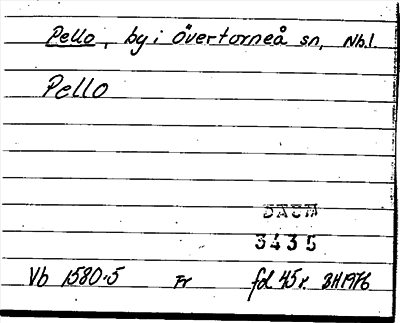 Pello, by i Övertorneå sn, Nb.l.
Pello
DAUM
3435
Vb 1580:5 Fr fd 45 r. 3H1976